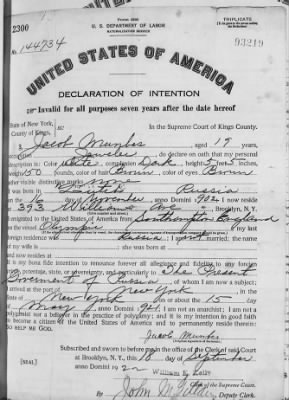 Form 2203
2300
U. S. DEPARTMENT OF LABOR
NATURALIZATION SERVICE
TRIPLICATE
No. 144734
93219
UNITED STATES OF AMERICA
DECLARATION OF INTENTION
Invalid for all purposes seven years after the date hereof
State of New York,
County of Kings,
In the Supreme Court of Kings County.
I, Jacob, aged 19 years,
occupation Jeweler, do declare on oath that my personal
description is: Color White, complexion Dark, height 5 feet 5 inches,
weight 150 pounds, color of hair Brown, color of eyes Brown
other visible distinctive marks none
I was born in Russia
on the 16 day of November, anno Domini 1902; I now reside
at 393 Williams Ave, Brooklyn, N. Y.
I emigrated to the United States of America from Southampton England
on the vessel Olympic; my last
foreign residence was Russia; I am married; the name
of my wife is; she was born at
and now resides at
It is my bona fide intention to renounce forever all allegiance and fidelity to any foreign
prince, potentate, state, or sovereignty, and particularly to The Present
Government of Russia, of whom I am now a subject;
I arrived at the port of New York, in the
State of New York, on or about the 15 day
of, anno Domini 1921; I am not an anarchist; I am not a
polygamist nor a believer in the practice of polygamy; and it is my intention in good faith
to become a citizen of the United States of America and to permanently reside therein:
SO HELP ME GOD.
Jacob
Subscribed and sworn to before me in the office of the Clerk of said Court
at Brooklyn, N. Y., this 18 day of September
anno Domini 1922
[SEAL]
William E. Kelly
Clerk of the Supreme Court.
By John, Deputy Clerk.